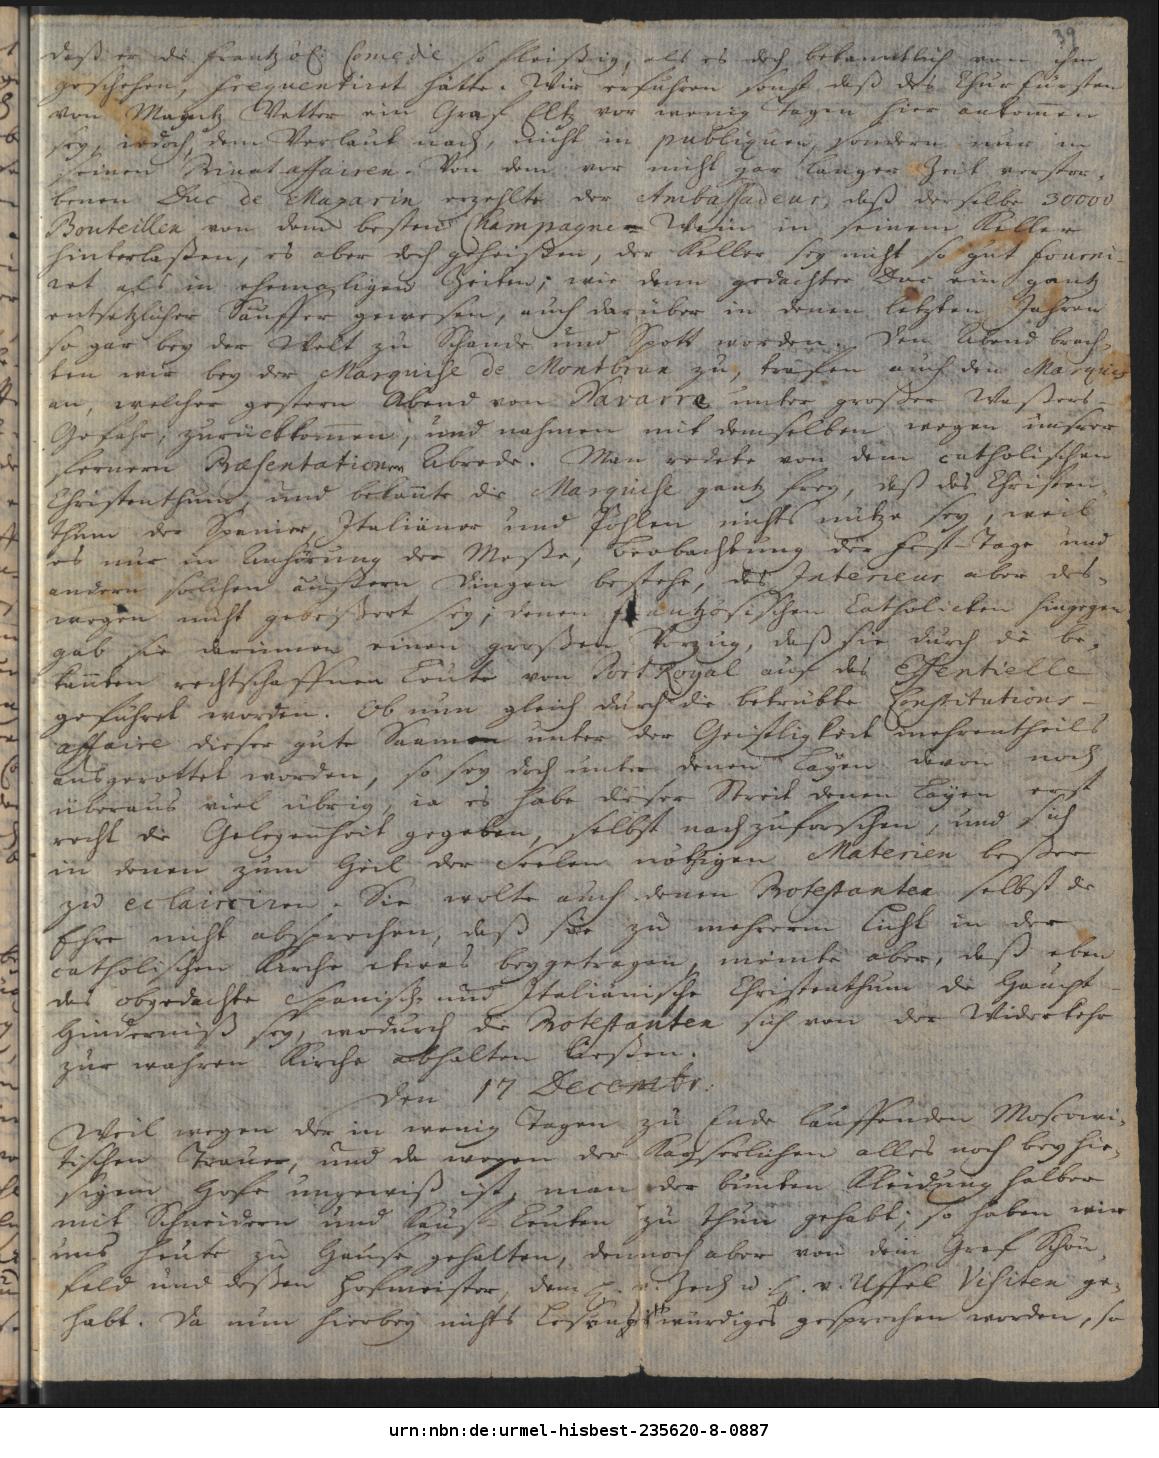 39
daß er die Frantzös: Comedie so fleißig, als es doch bekanntlich von ihm
geschehen, frequentiret hätte. Wir erfuhren sonst daß des Churfürsten
von Mayntz Vetter ein Graf Eltz vor wenig Tagen hier ankom̅en
sey, iedoch, dem Verlaut nach, nicht in publiquen, sondern nur in
seinen Privat affairen. Von dem vor nicht gar langer Zeit verstor-
benen Duc de Mazarin erzehlte der Ambassadeur, daß derselbe 30000
Bouteillen von dem besten Champagne-Wein in seinem Keller
hinterlaßen, es aber doch geheißen, der Keller sey nicht so gut fourni-
ret als in ehemaligen Zeiten; wie denn gedachter Duc ein gantz
entsetzlicher Säuffer gewesen, auch darüber in denen letzten Jahren
so gar bey der Welt zu Schande und Spott worden. Den Abend brach-
ten wir bey der Marquise de Montbrun zu, trafen auch den Marquis
an, welcher gestern Abend von Navarre unter großer Waßers-
Gefahr, zurückkom̅en, und nahmen mit demselben wegen unsrer
fernern Præsentationen Abrede. Man redete von dem catholischen
Christenthum, und bekan̅te die Marquise gantz frey, daß das Christen-
thum der Spanier, Italiäner und Pohlen nichts nütze sey, weil
es nur in Anhörung der Meße, Beobachtung der Fest-Tage und
andern solchen äußern Dingen bestehe, das Interieur aber des-
wegen nicht gebeßert sey; denen frantzösischen Catholicken hingegen
gab sie darinnen einen großen Vorzug, daß sie durch die be-
kan̅ten rechtschaffnen Leute von Port Royal auf das Essentielle
geführet worden. Ob nun gleich durch die betrübte Constitutions-
affaire dieser gute Saamen unter der Geistligkeit mehrentheils
ausgerottet worden, so sey doch unter denen Layen davon noch
überaus viel übrig, ia es habe dieser Streit denen Layen erst
recht die Gelegenheit gegeben, selbst nachzuforschen, und sich
in denen zum Heil der Seelen nöthigen Materien beßer
zu eclairciren. Sie wolte auch denen Protestanten selbst die
Ehre nicht absprechen, daß sie zu mehrerm Licht in der
catholischen Kirche etwas beygetragen, meinte aber, daß eben
das obgedachte Spanisch- und Italiänische Christenthum die Haupt-
Hinderniß sey, wodurch die Protestanten sich von der Widerkehr
zur wahren Kirche abhalten ließen.
Den 17 Decembr:
Weil wegen der in wenig Tagen zu Ende lauffenden Moscowi-
tischen Trauer, und da wegen der Kayserlichen alles noch bey hie-
sigem Hofe ungewiß ist, man der bunten Kleidung halber
mit Schneidern und Kauf-Leuten zu thun gehabt; so haben wir
uns heute zu Hause gehalten, dennoch aber von dem Graf Schön-
feld und deßen Hofmeister, dem H. v. Zech u. H. v. Uffel Visiten ge-
habt. Da nun hierbey nichts Lesenswürdiges gesprochen worden, so
urn:nbn:de:urmel-hisbest-235620-8-0887